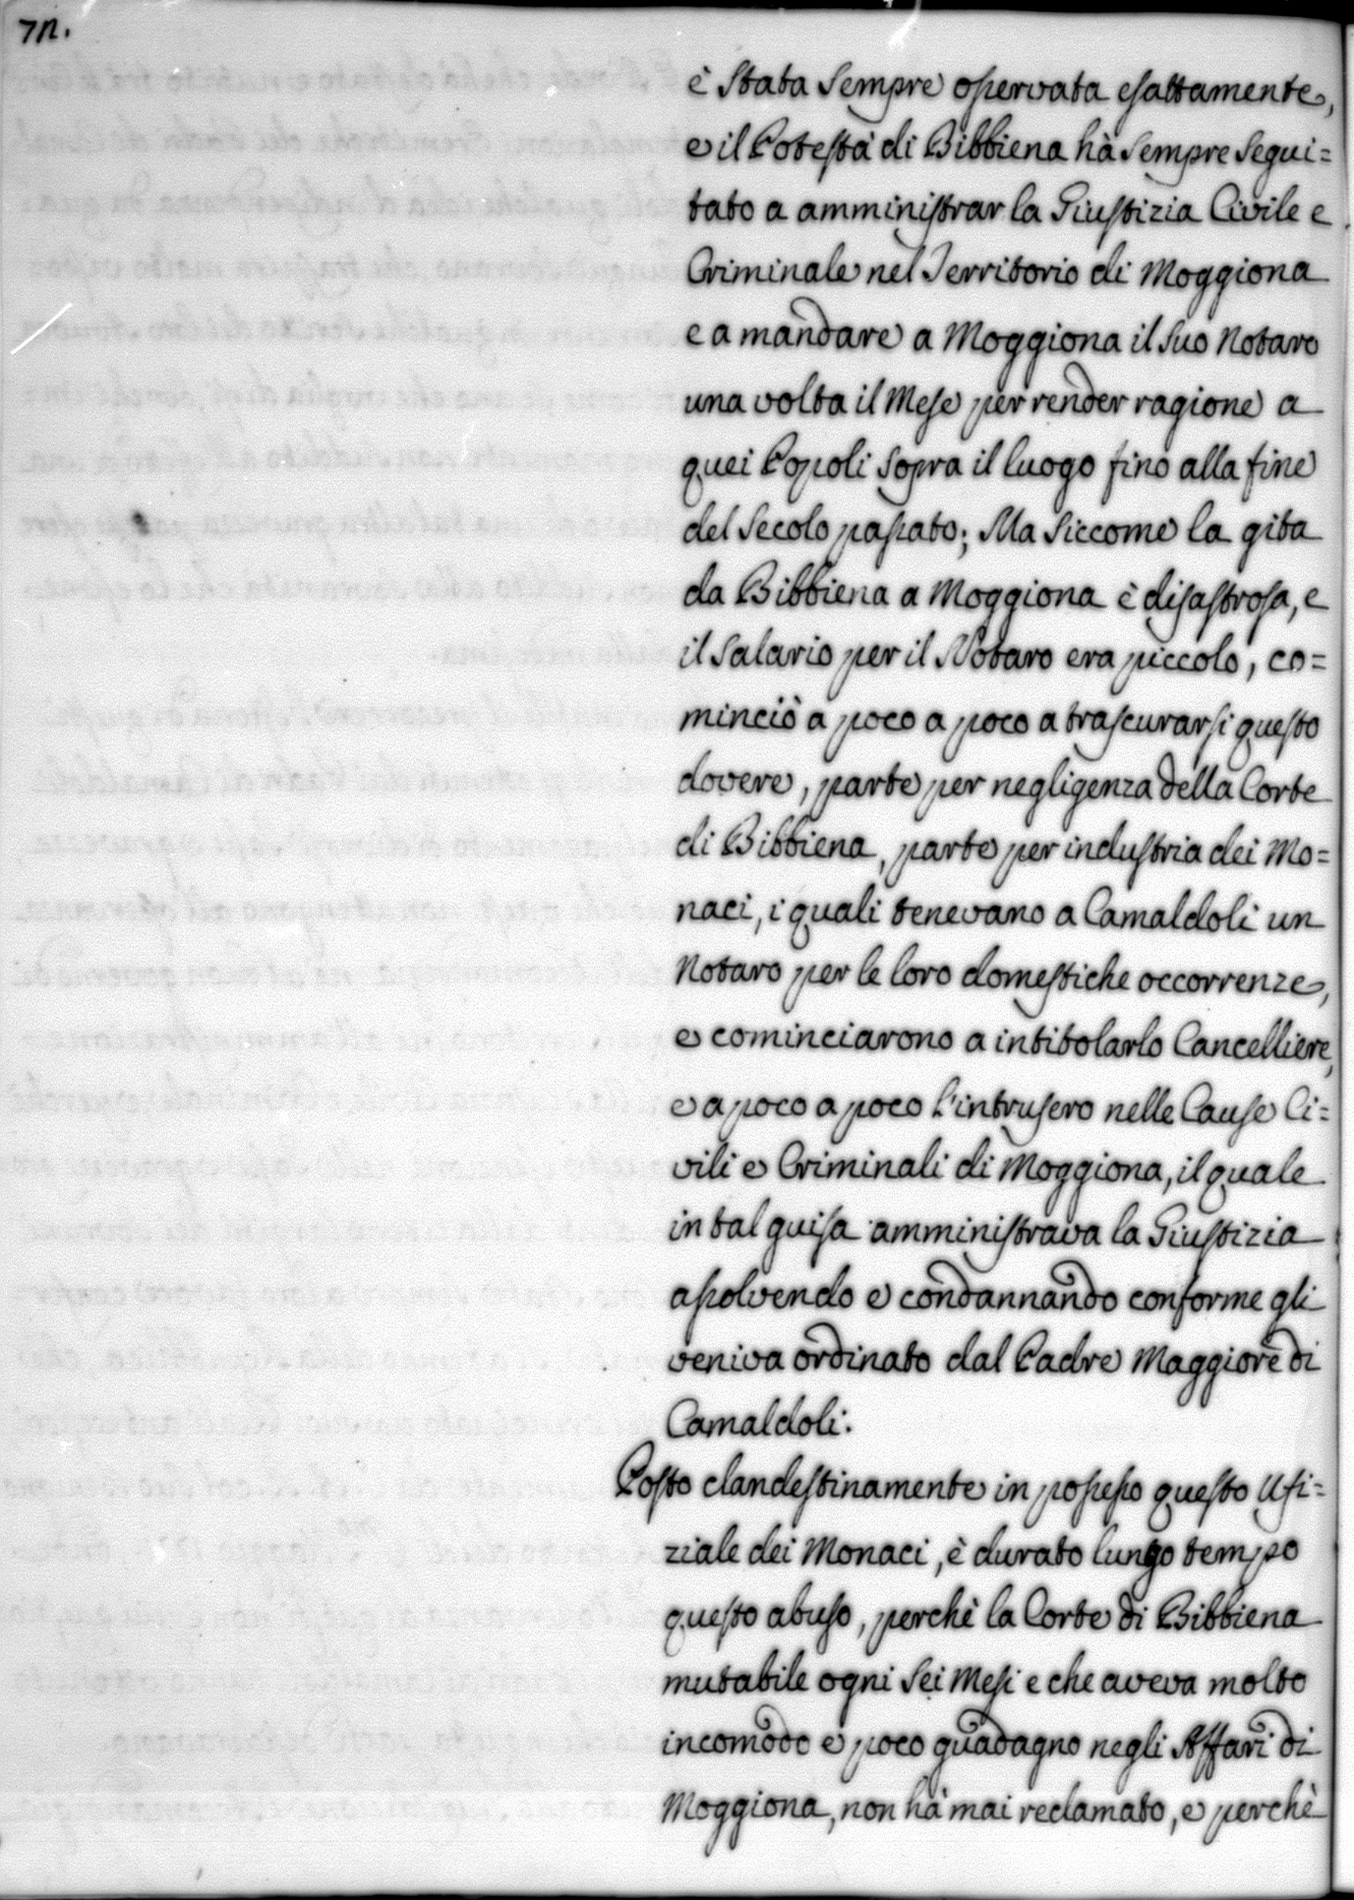 72.
è stata sempre osservata esattamente,
e il Potestà di Bibbiena hà sempre segui=
tato a amministrar la Giustizia Civile e
Criminale nel Territorio di Moggiona
e a mandare a Moggiona il suo Notaro
una volta il Mese per render ragione a
quei Popoli sopra il luogo fino alla fine
del secolo passato; Ma siccome la gita
da Bibbiena a Moggiona è disastrosa, e
il salario per il Notaro era piccolo, co=
minciò a poco a poco a trascurarsi questo
dovere, parte per negligenza della Corte
di Bibbiena, parte per industria dei Mo=
naci, i quali tenevano a Camaldoli un
Notaro per le loro domestiche occorrenze,
e cominciarono a intitolarlo Cancelliere,
e a poco a poco l'intrusero nelle Cause Ci=
vili e Criminali di Moggiona, il quale
in tal guisa amministrava la Giustizia
assolvendo e condannando conforme gli
veniva ordinato dal Padre Maggiore di
Camaldoli.
Posto clandestinamente in possesso questo Ufi=
ziale dei Monaci, è durato lungo tempo
questo abuso, perchè la Corte di Bibbiena
mutabile ogni sei Mesi e che aveva molto
incomodo e poco guadagno negli Affari di
Moggiona, non hà mai reclamato, e perchè